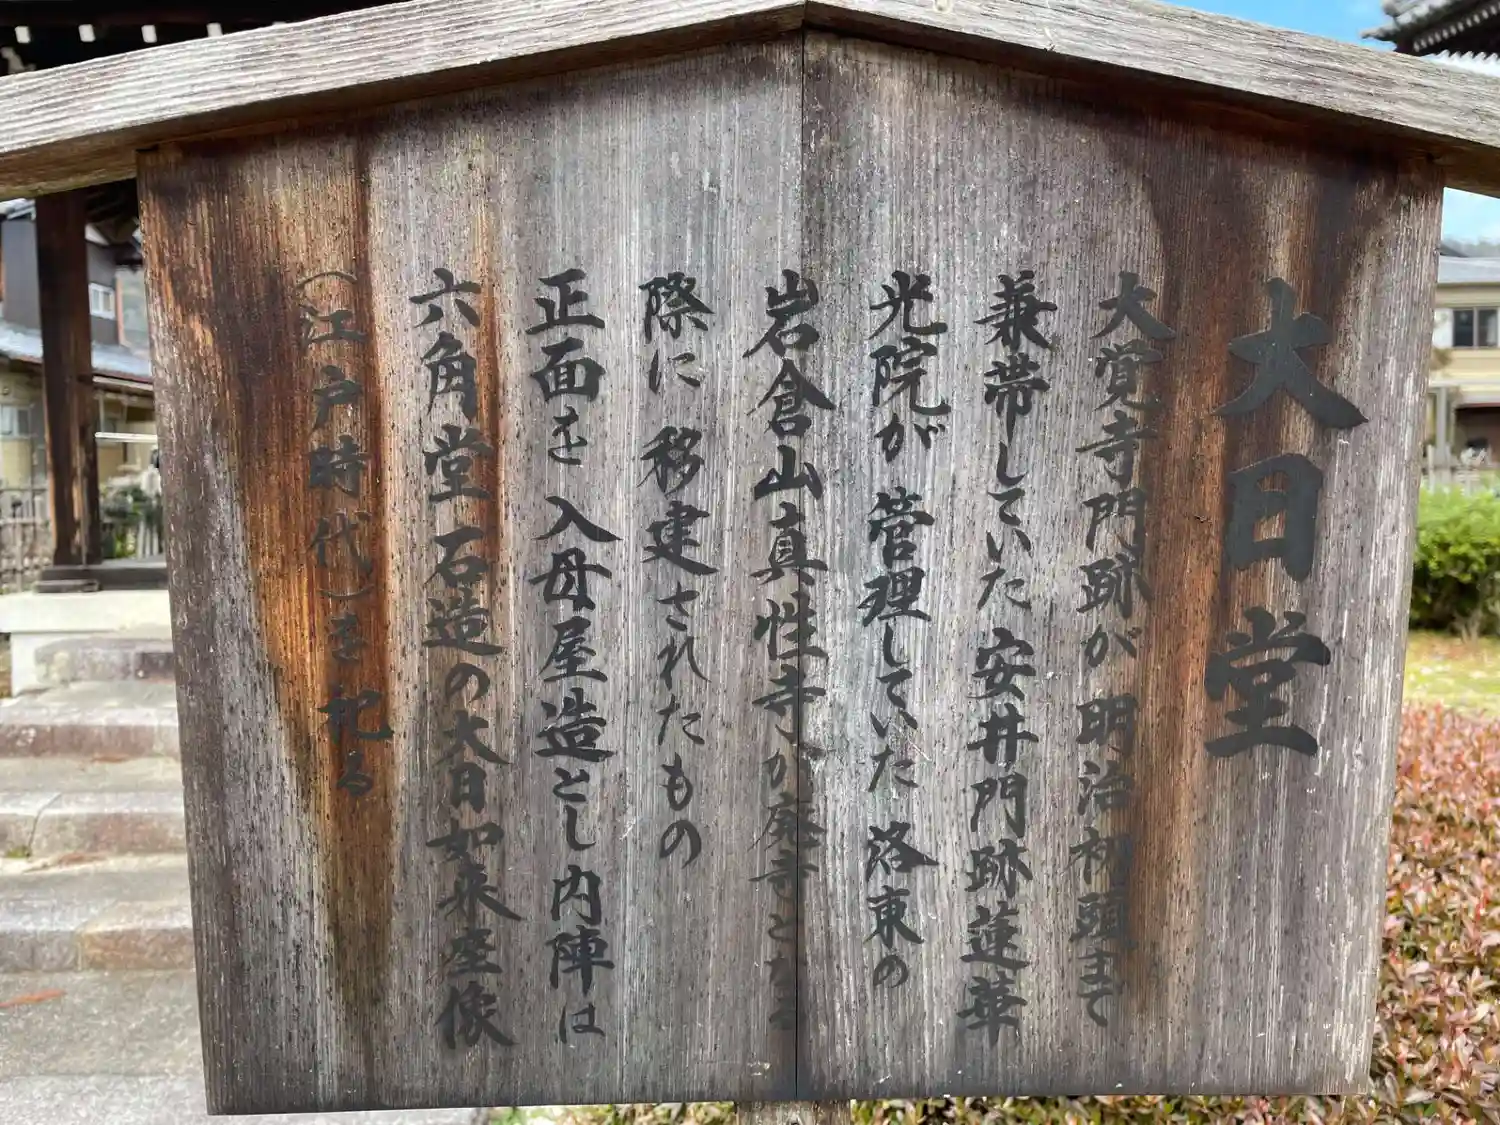 大日堂
大覚寺門跡が明治初頭まで
兼帯していた安井門跡蓮華
光院が管理していた洛東の
岩倉山真性寺が廃寺となる
際に移建されたもの
正面を入母屋造とし内陣は
六角堂石造の大日如来座像
（江戸時代）を祀る